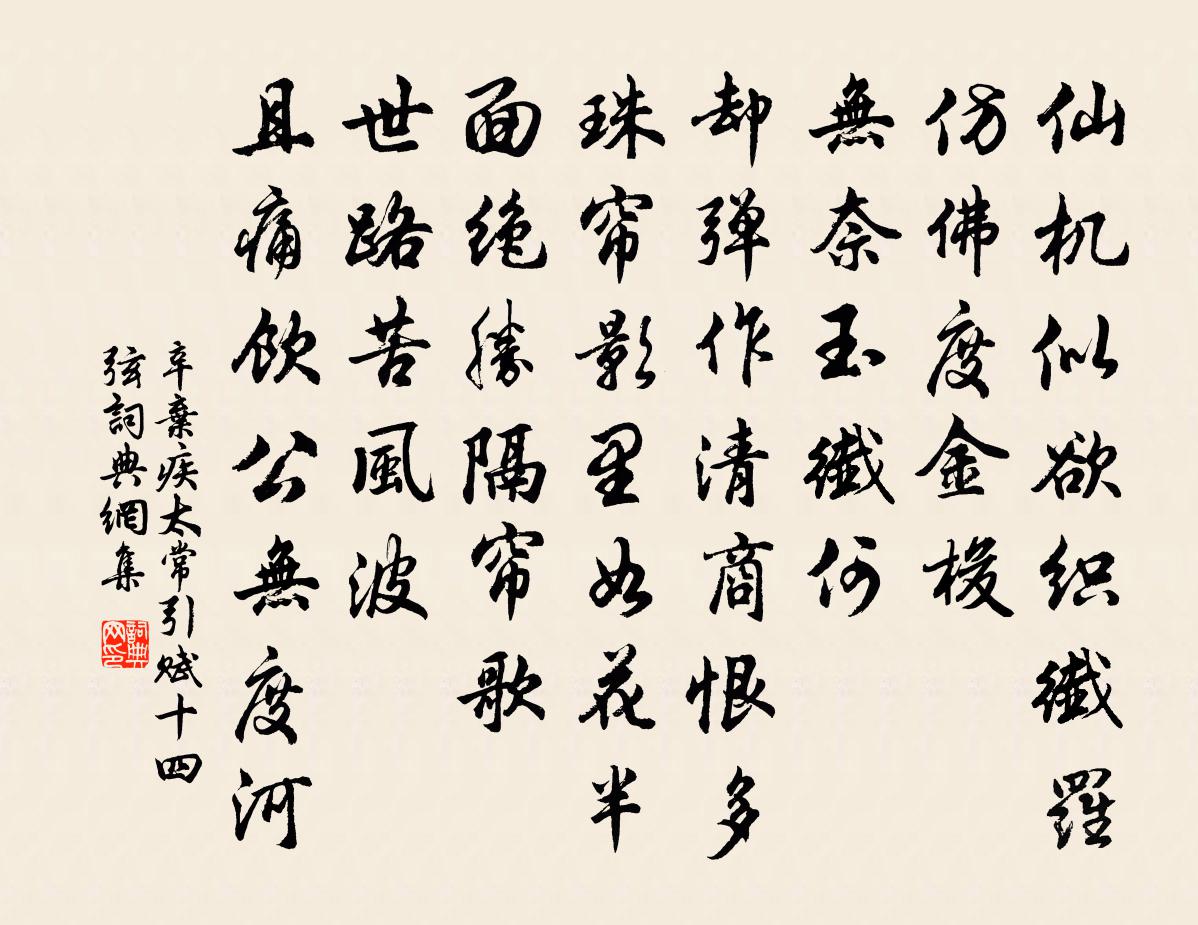 仙机似欲织纖羅
仿佛度金梭
無奈玉纖何
却弹作清商恨多
珠帘影里如花半
面绝勝隔帘歌
世路苦風波
且痛飲公無度河
辛棄疾太常引賦十四
弦詞典網集
詞典网印